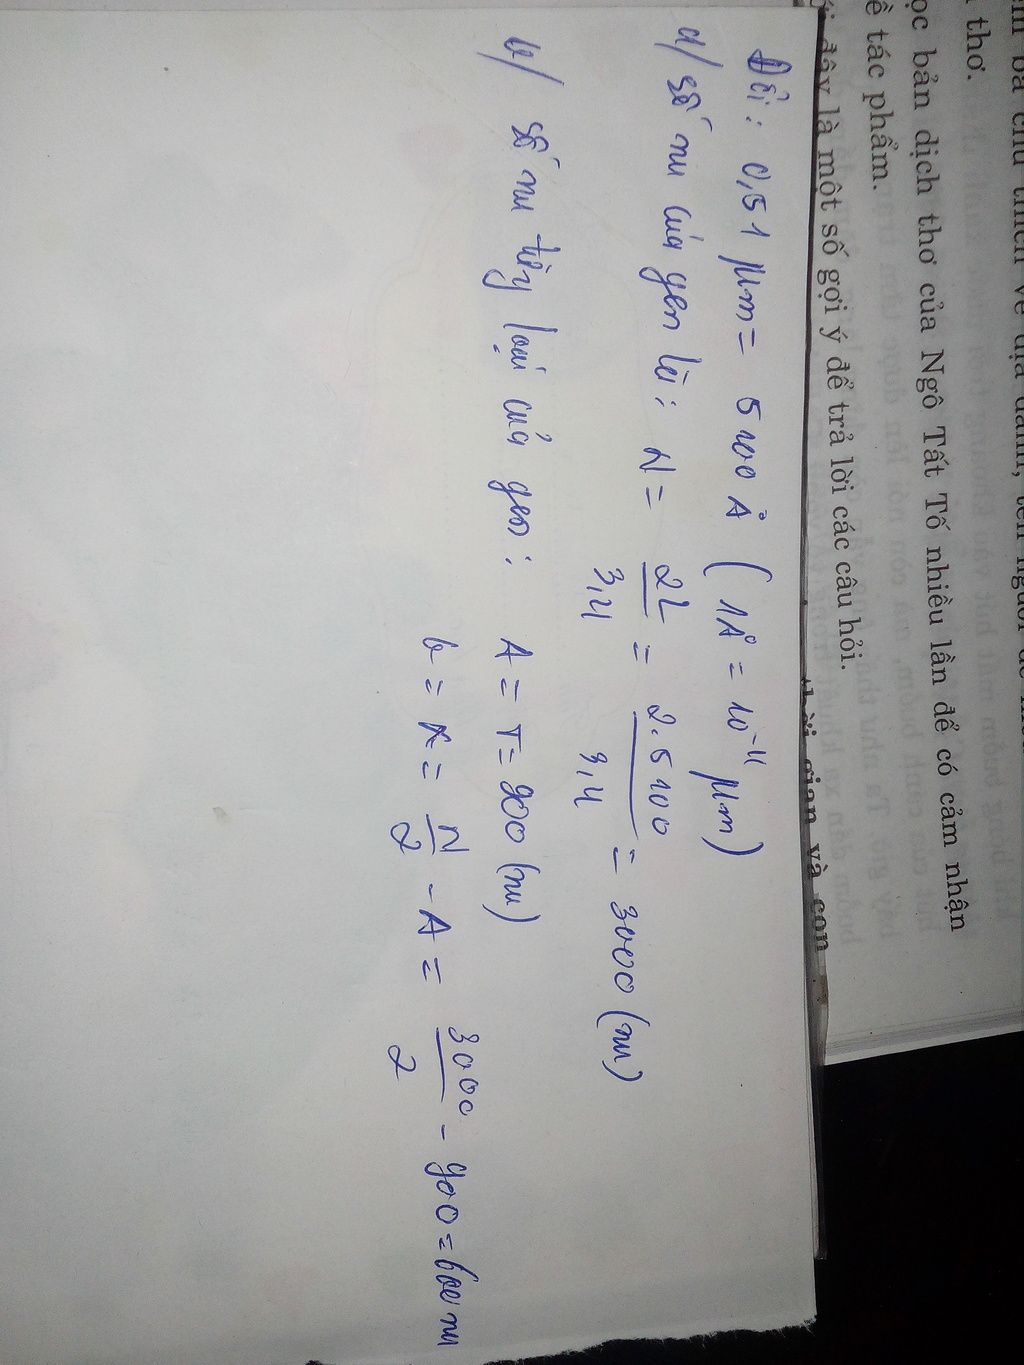 ọc bản dịch thơ của Ngô Tất Tố nhiều lần để có cảm nhận
ề tác phẩm.
đây là một số gợi ý để trả lời các câu hỏi.
thơ.
Đổi: 0,51 µm = 5100 Å (1Å = 10⁻⁴ µm)
a/ Số nu của gen là: N = 2L/3,4 = 2.5100/3,4 = 3000 (nu)
b/ Số nu từng loại của gen: A = T = 900 (nu)
G = X = N/2 - A = 3000/2 - 900 = 600 nu